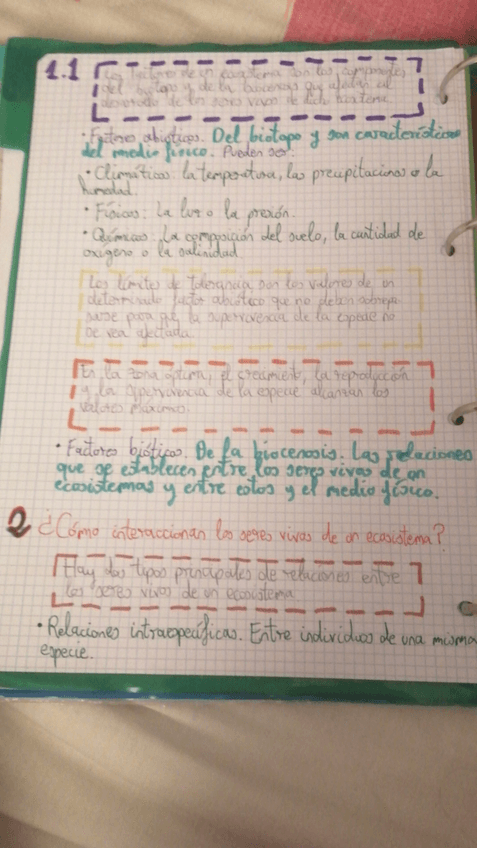 1.1 Los factores de un ecosistema son los componentes
del biotopo y de la biocenosis que afectan al
desarrollo de los seres vivos de dicho ecosistema.
· Factores abióticos. Del biotopo y son características
del medio físico. Pueden ser:
· Climáticos: la temperatura, las precipitacions o la
humedad.
· Físicos: La luz o la presión.
· Químicos: La composición del suelo, la cantidad de
oxígeno o la salinidad
Los límites de tolerancia son los valores de un
determinado factor abiótico que no deben sobrepa-
sarse para que la supervivencia de la especie no
se vea afectada.
En la zona óptima, el crecimiento, la reproducción
y la supervivencia de la especie alcanzan los
valores máximos.
· Factores bióticos. De la biocenosis. Las relaciones
que se establecen entre los seres vivos de un
ecosistemas y entre estos y el medio físico.
2 ¿Cómo interaccionan los seres vivos de un ecosistema?
Hay dos tipos principales de relaciones entre
los seres vivos de un ecosistema
· Relaciones intraespecíficas. Entre individuos de una misma
especie.